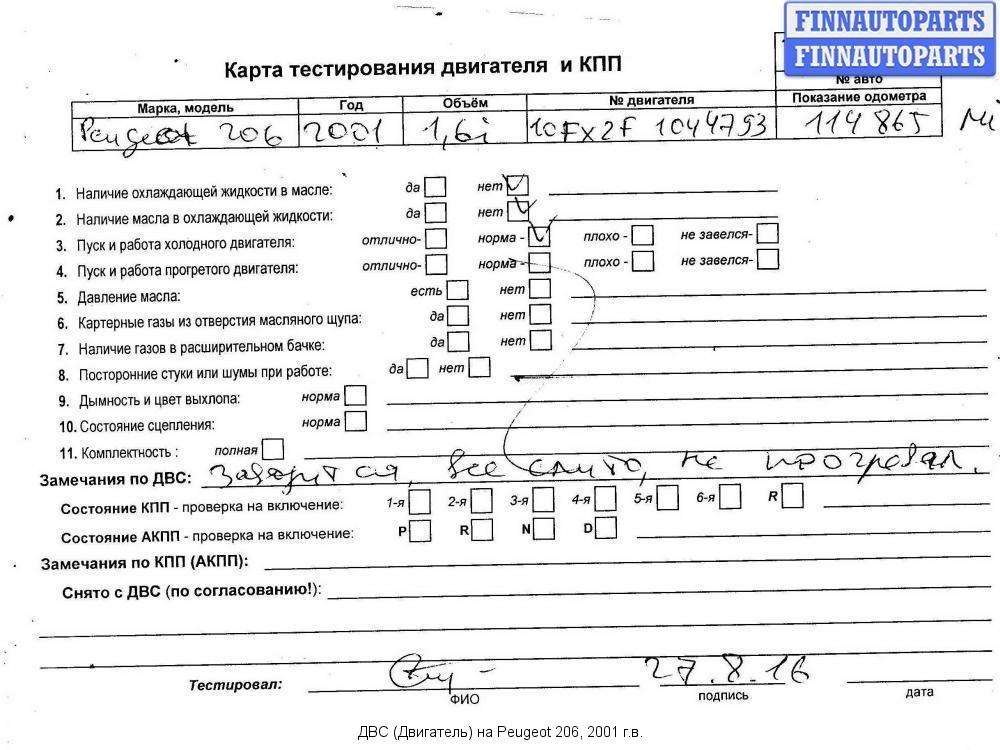 FINNAUTOPARTS
FINNAUTOPARTS
Карта тестирования двигателя и КПП
№ авто
Марка, модель Год Объём № двигателя Показание одометра
Peugeot 206 2001 1,6i 10FX2F 1044793 114865
1. Наличие охлаждающей жидкости в масле: да нет
2. Наличие масла в охлаждающей жидкости: да нет
3. Пуск и работа холодного двигателя: отлично- норма - плохо - не завелся-
4. Пуск и работа прогретого двигателя: отлично- норма - плохо - не завелся-
5. Давление масла: есть нет
6. Картерные газы из отверстия масляного щупа: да нет
7. Наличие газов в расширительном бачке: да нет
8. Посторонние стуки или шумы при работе: да нет
9. Дымность и цвет выхлопа: норма
10. Состояние сцепления: норма
11. Комплектность : полная
Замечания по ДВС: Заводится, все слито, не прогревал.
Состояние КПП - проверка на включение: 1-я 2-я 3-я 4-я 5-я 6-я R
Состояние АКПП - проверка на включение: P R N D
Замечания по КПП (АКПП):
Снято с ДВС (по согласованию!):
Тестировал: 27.8.16
ФИО подпись дата
ДВС (Двигатель) на Peugeot 206, 2001 г.в.